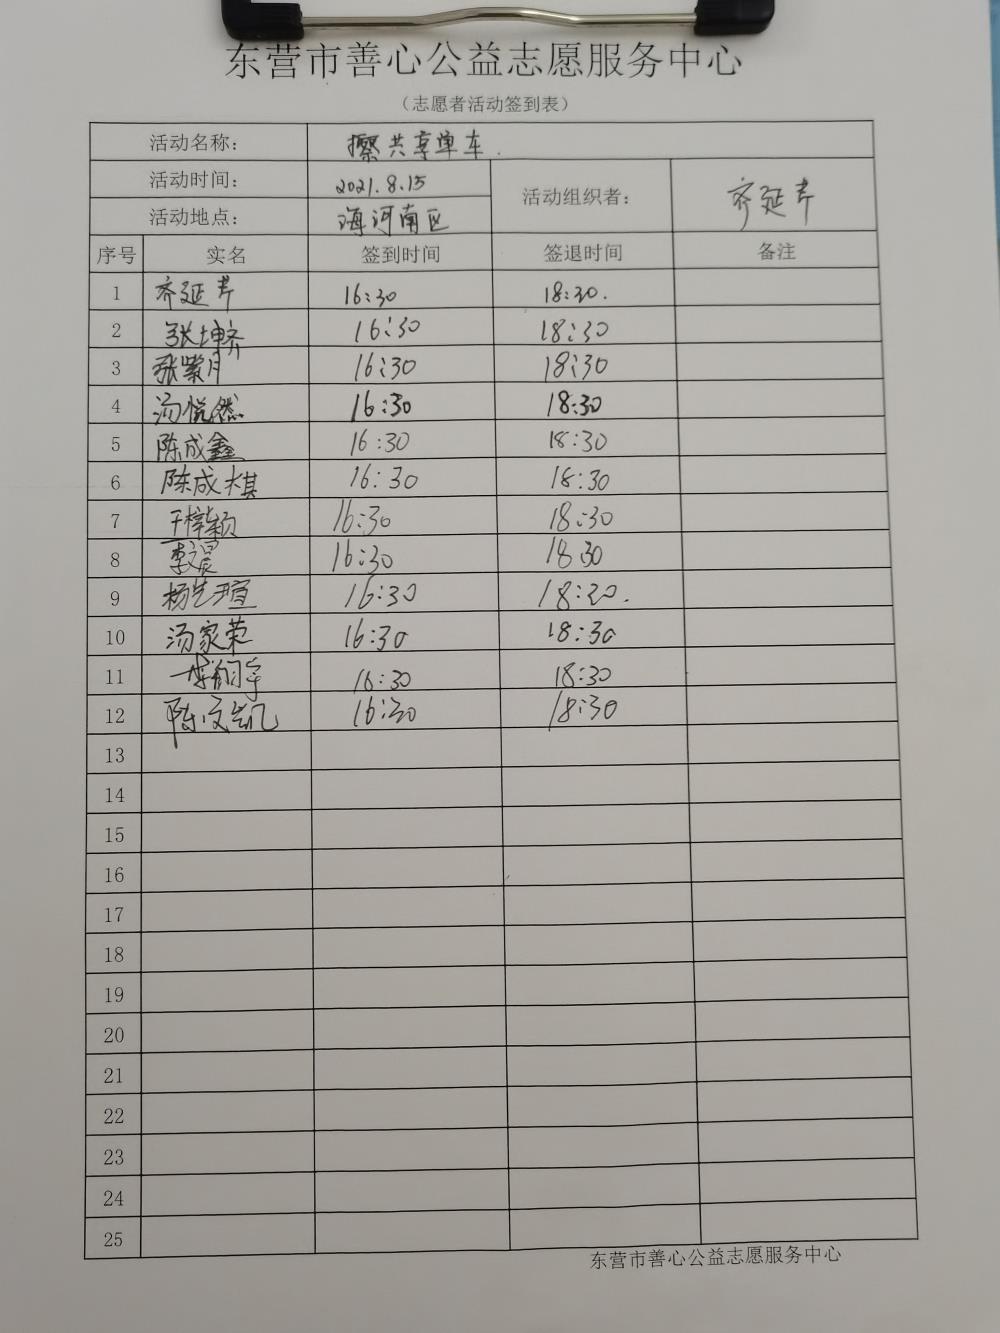 东营市善心公益志愿服务中心
（志愿者活动签到表）
活动名称： 擦共享单车.
活动时间： 2021.8.15 活动组织者： 齐延芹
活动地点： 海河南区
序号 实名 签到时间 签退时间 备注
1 齐延芹 16:30 18:30.
2 张坤齐 16:30 18:30
3 张紫月 16:30 18:30
4 汤悦然 16:30 18:30
5 陈成鑫 16:30 18:30
6 陈成棋 16:30 18:30
7 王梓颖 16:30 18:30
8 李文晨 16:30 18 30
9 杨艺瑄 16:30 18:30.
10 汤家荣 16:30 18:30
11 翔宇 16:30 18:30
12 陈文凯 16:30 18:30
13
14
15
16
17
18
19
20
21
22
23
24
25
东营市善心公益志愿服务中心